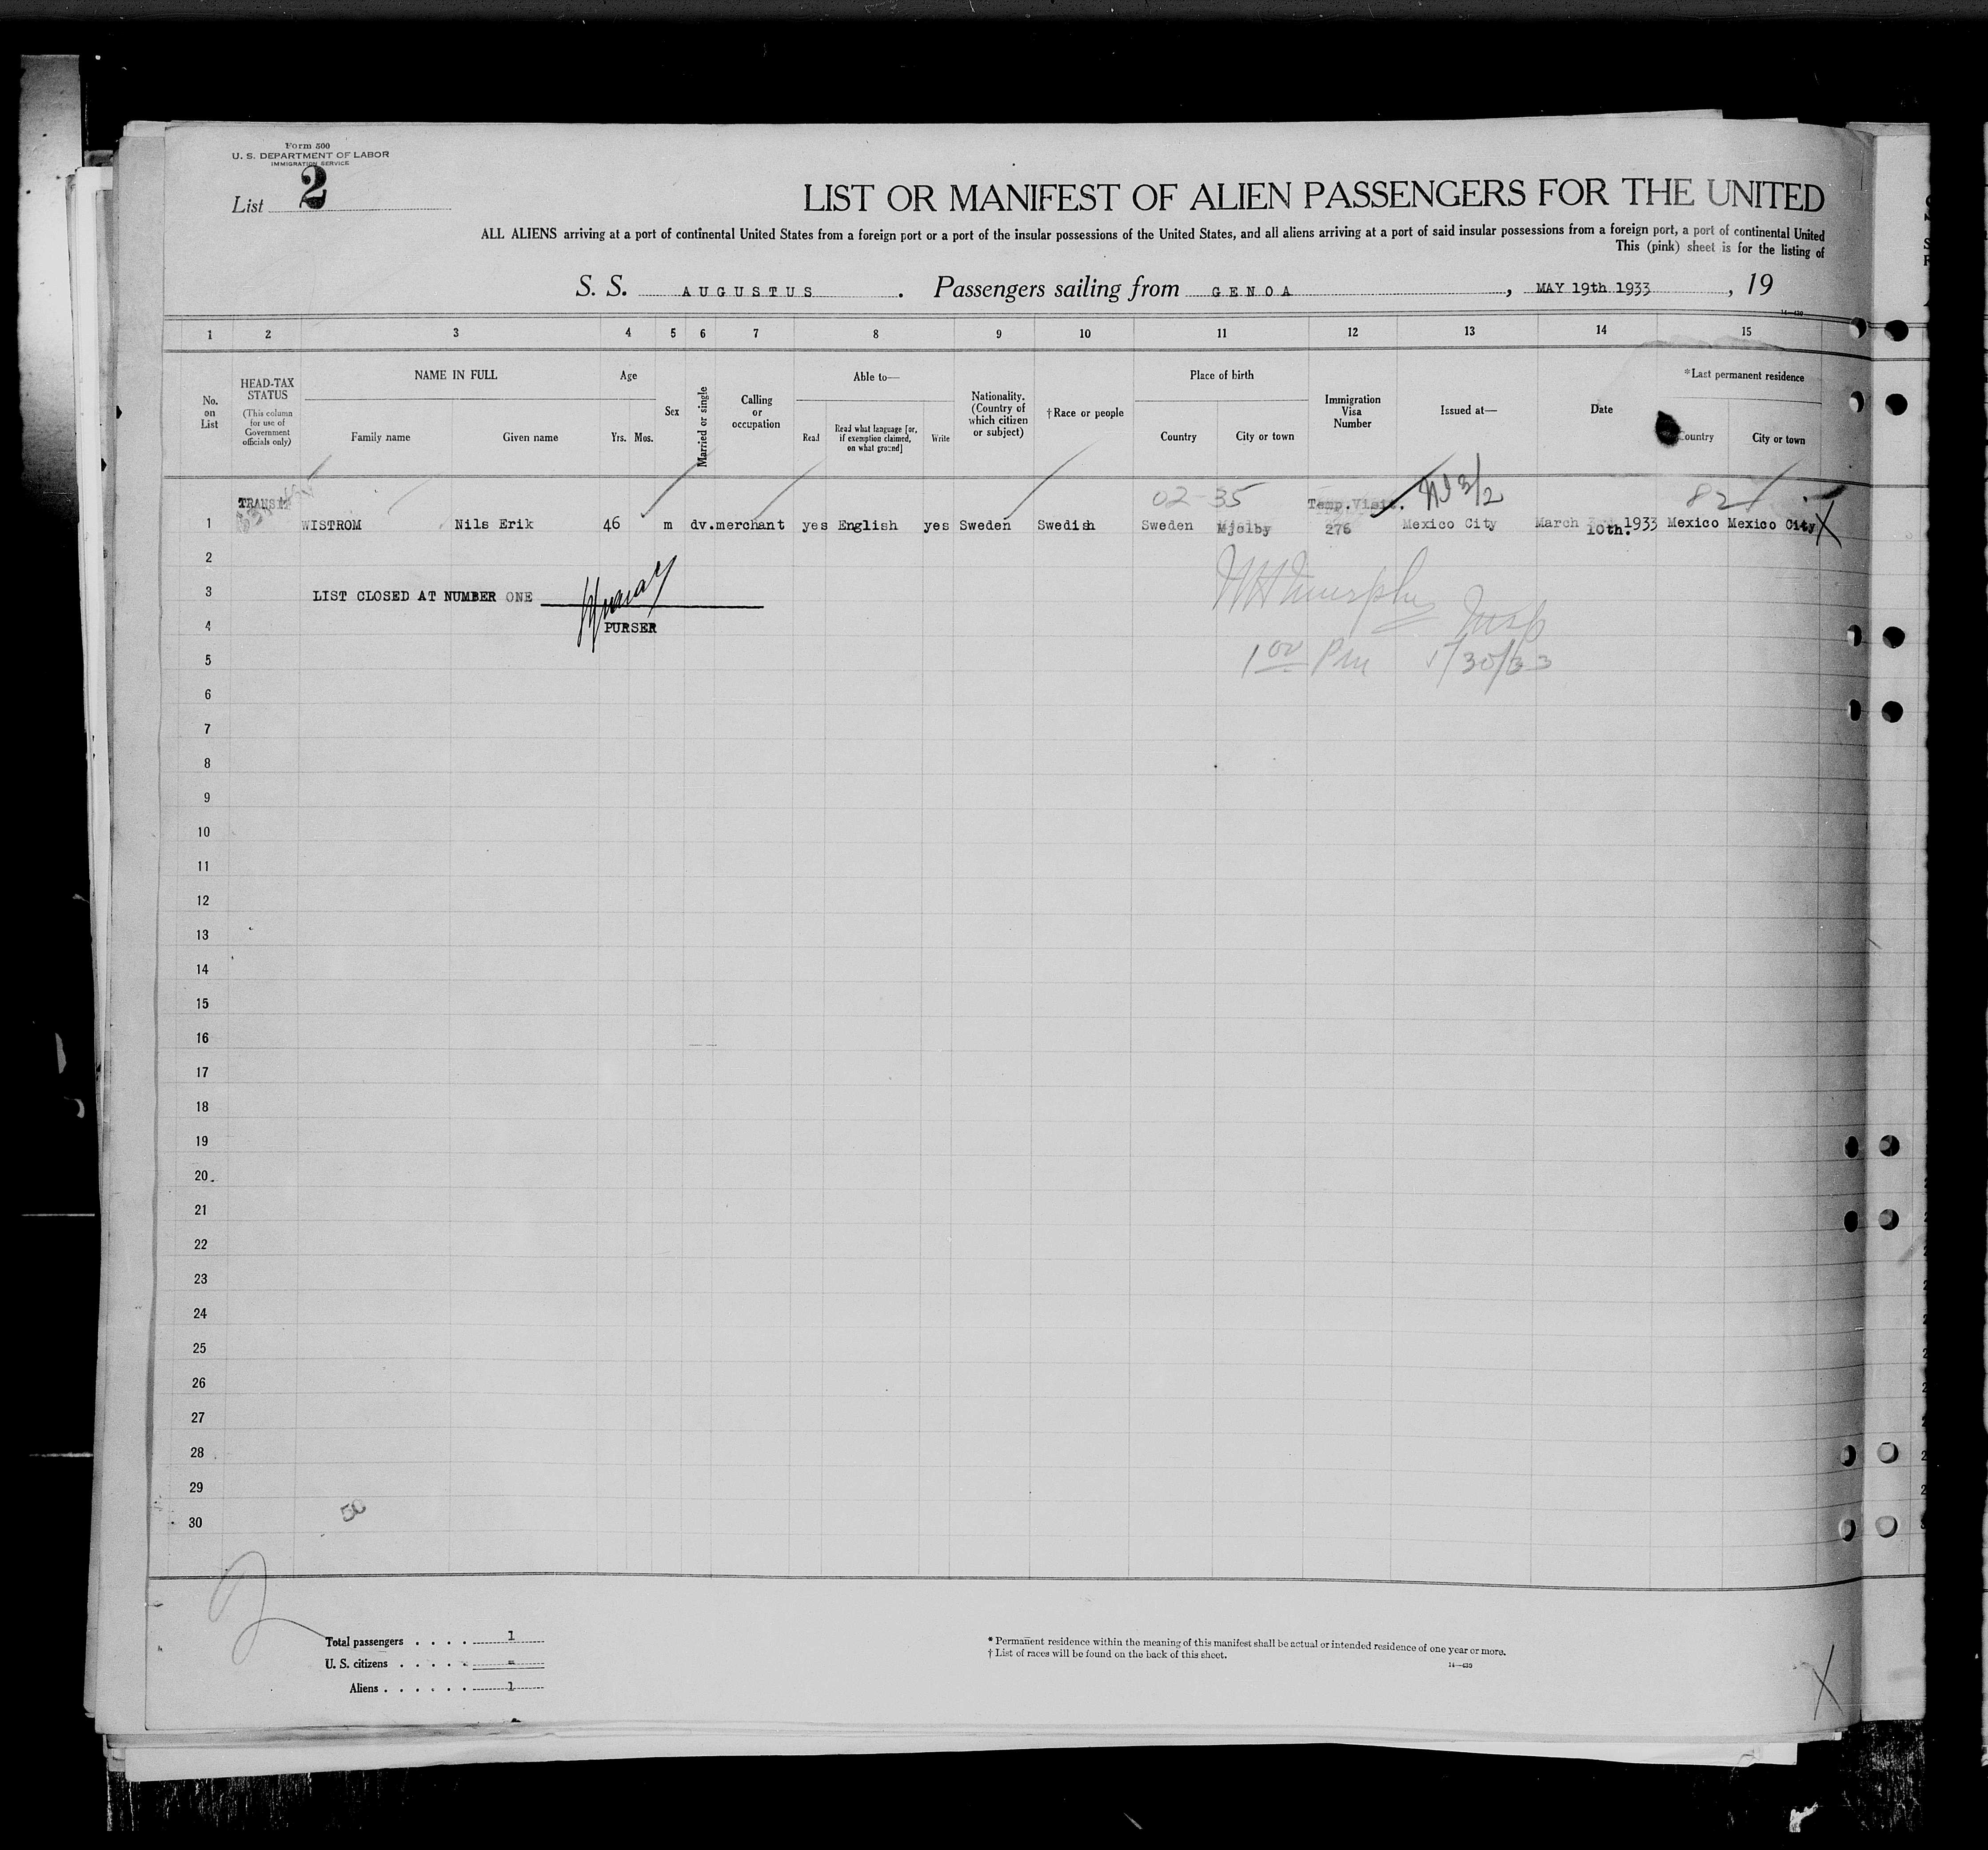 Form 500
U. S. DEPARTMENT OF LABOR
IMMIGRATION SERVICE
List 2
LIST OR MANIFEST OF ALIEN PASSENGERS FOR THE UNITED
ALL ALIENS arriving at a port of continental United States from a foreign port or a port of the insular possessions of the United States, and all aliens arriving at a port of said insular possessions from a foreign port, a port of continental United
This (pink) sheet is for the listing of
S. S. AUGUSTUS. Passengers sailing from GENOA, MAY 19th 1933, 19
14—430
1 2 3 4 5 6 7 8 9 10 11 12 13 14 15
No. on List
HEAD-TAX STATUS
(This column for use of Government officials only)
NAME IN FULL
Family name Given name
Age
Yrs. Mos.
Sex
Married or single
Calling or occupation
Able to—
Read
Read what language [or, if exemption claimed, on what ground]
Write
Nationality. (Country of which citizen or subject)
†Race or people
Place of birth
Country City or town
Immigration Visa Number
Issued at—
Date
*Last permanent residence
Country City or town
02-35 Temp.Visit. 82
TRANSIT
1 WISTROM Nils Erik 46 m dv. merchant yes English yes Sweden Swedish Sweden Mjolby 276 Mexico City March 10th. 1933 Mexico Mexico City X
2
3 LIST CLOSED AT NUMBER ONE
4 PURSER
W H Murphy Insp
1 00 Pm 5/30/33
5
6
7
8
9
10
11
12
13
14
15
16
17
18
19
20
21
22
23
24
25
26
27
28
29
30
50
2
Total passengers . . . . 1
U. S. citizens . . . . . -
Aliens . . . . . . 1
* Permanent residence within the meaning of this manifest shall be actual or intended residence of one year or more.
† List of races will be found on the back of this sheet.
14—430
X